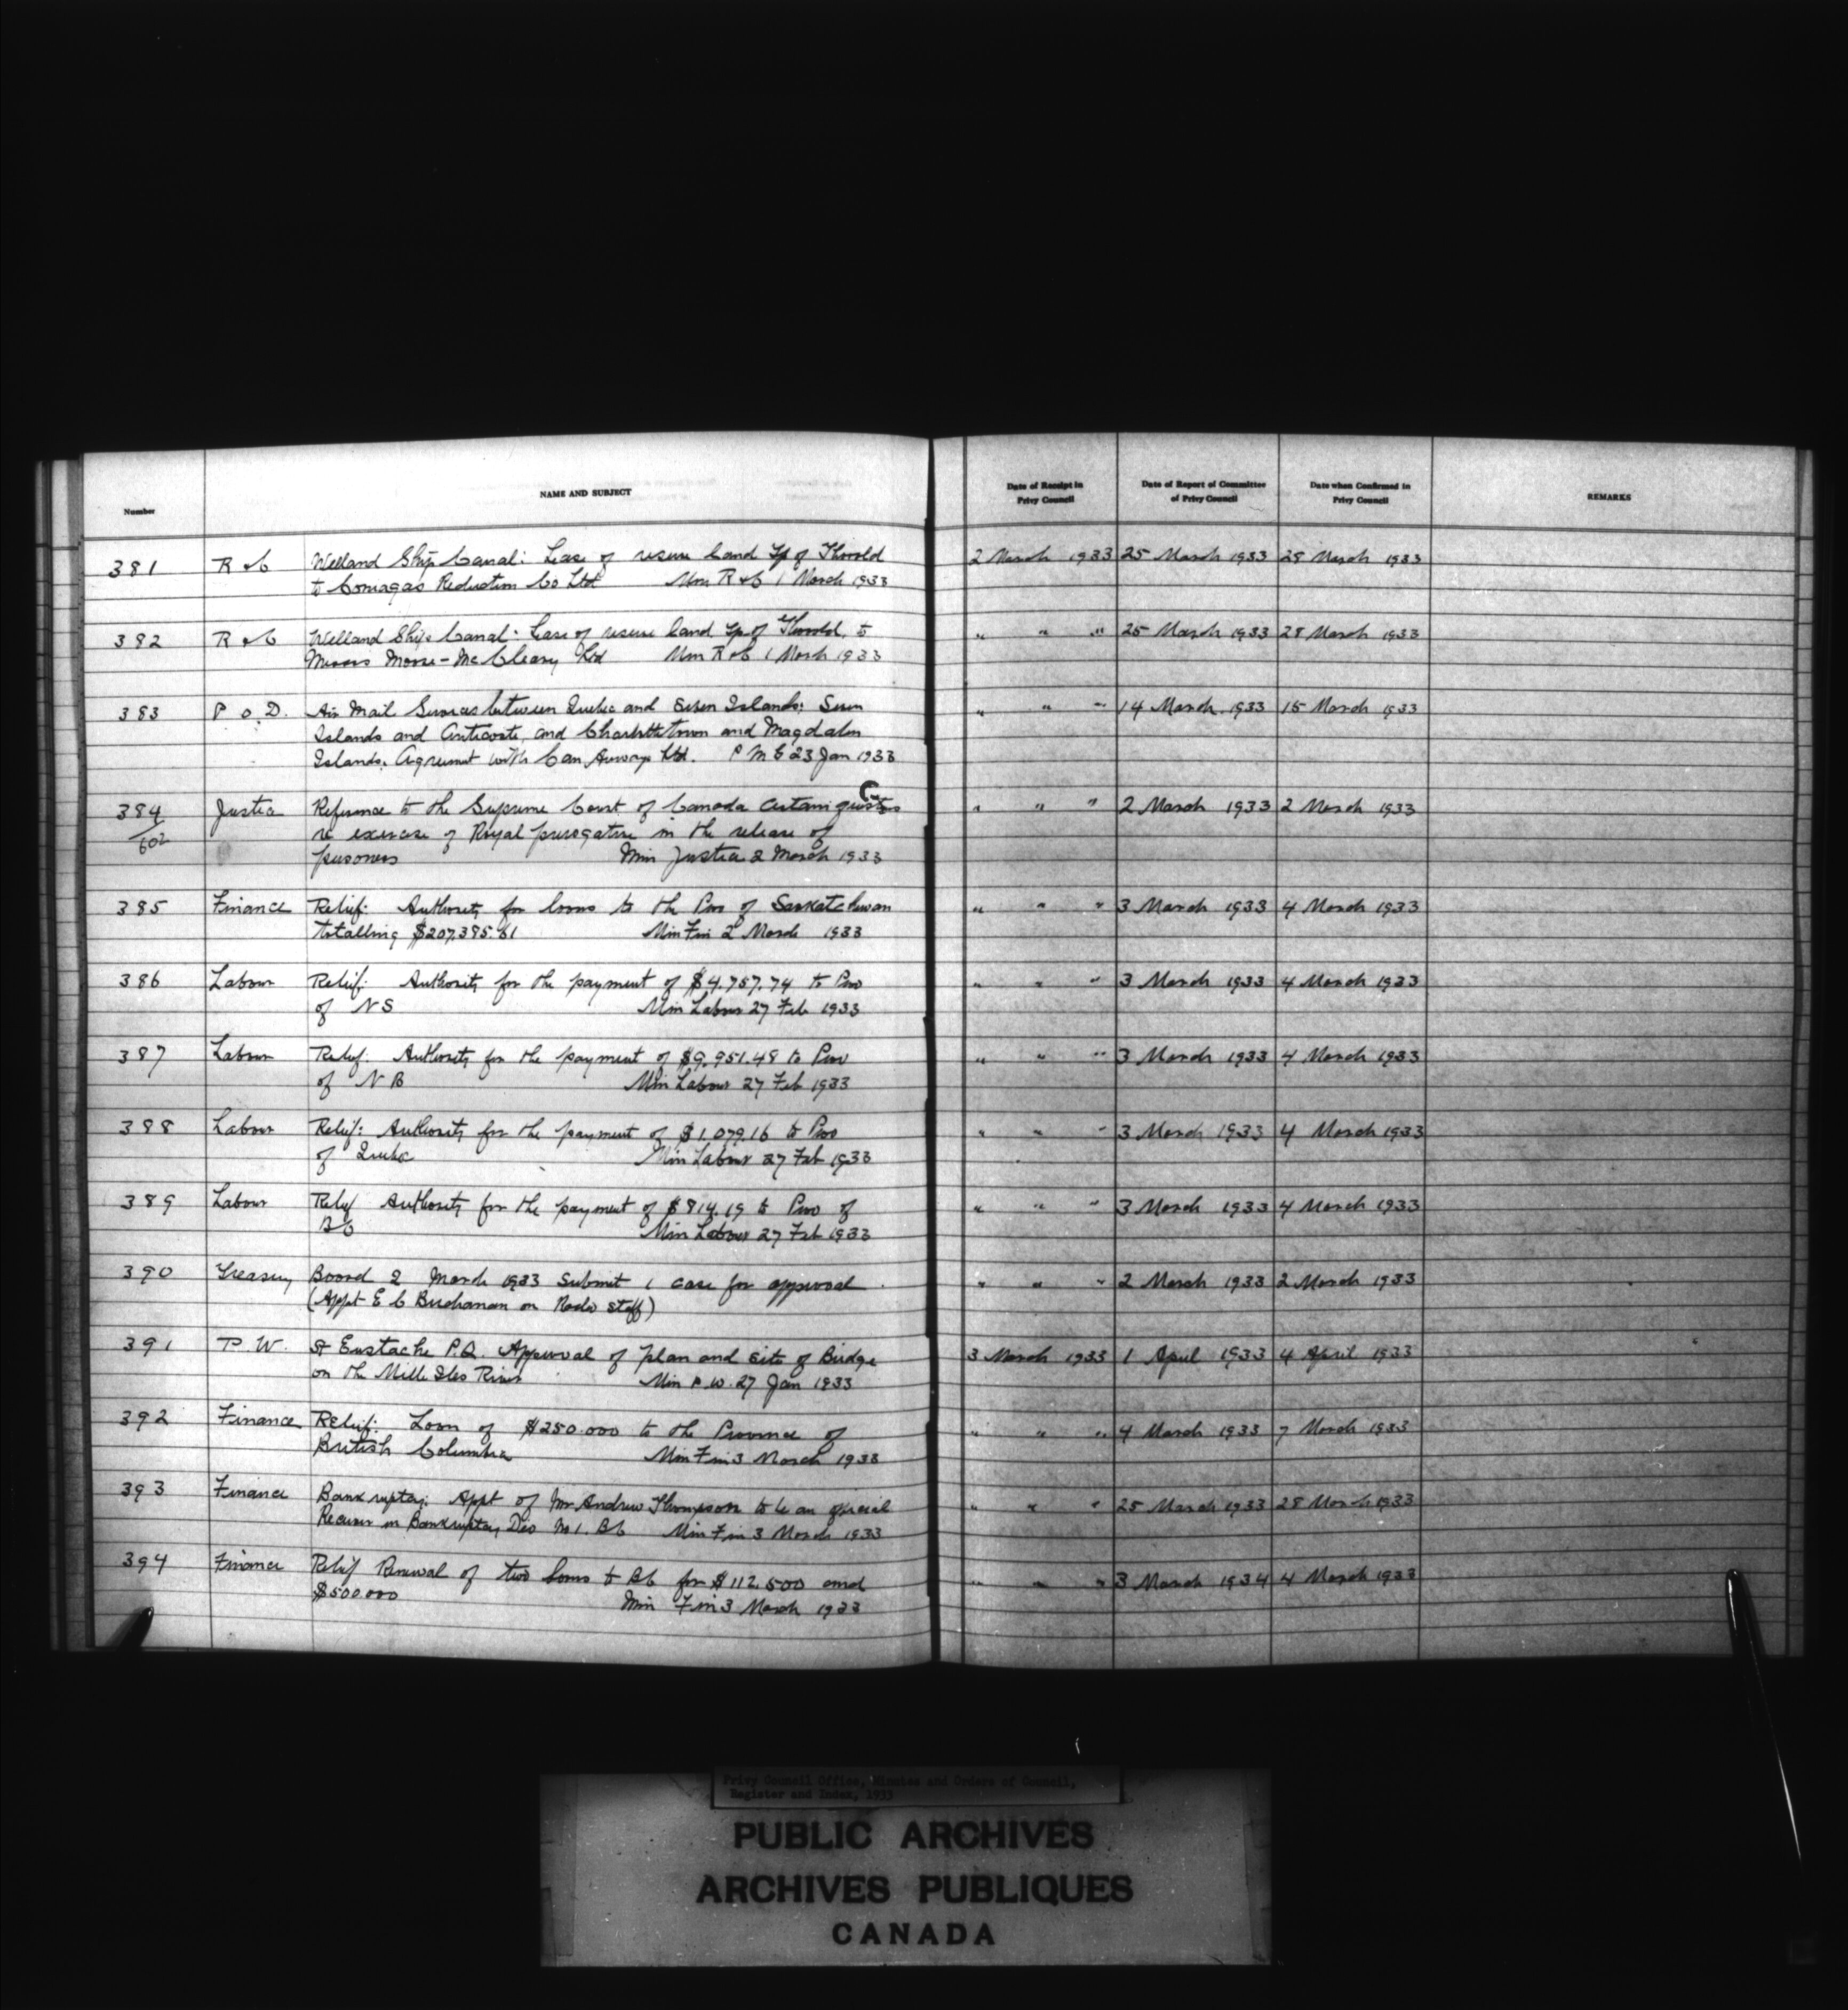 Number
NAME AND SUBJECT
Date of Receipt in
Privy Council
Date of Report of Committee
of Privy Council
Date when Confirmed in
Privy Council
REMARKS
381 R & C Welland Ship Canal: Lease of reserve land Tp of Thorold 2 March 1933 25 March 1933 28 March 1933
to Coniagas Reduction Co Ltd Min R & C 1 March 1933
382 R & C Welland Ship Canal: Lease of reserve land Tp of Thorold, to " " " 25 March 1933 28 March 1933
Messrs Morse-McCleary Ltd Min R & C 1 March 1933
383 P.O.D. Air Mail Services between Quebec and Seven Islands: Seven " " " 14 March 1933 15 March 1933
Islands and Anticosti, and Charlottetown and Magdalen
Islands. Agreement with Can Airways Ltd. P M G 23 Jan 1933
384 Justice Reference to the Supreme Court of Canada certain questions " " " 2 March 1933 2 March 1933
602 re exercise of Royal prerogative in the release of
prisoners Min Justice 2 March 1933
385 Finance Relief: Authority for loans to the Prov of Saskatchewan " " " 3 March 1933 4 March 1933
totalling $207,395.61 Min Fin 2 March 1933
386 Labour Relief: Authority for the payment of $4,757.74 to Prov " " " 3 March 1933 4 March 1933
of N S Min Labour 27 Feb 1933
387 Labour Relief. Authority for the payment of $9,951.48 to Prov " " " 3 March 1933 4 March 1933
of N B Min Labour 27 Feb 1933
388 Labour Relief: Authority for the payment of $1,079.16 to Prov " " " 3 March 1933 4 March 1933
of Quebec Min Labour 27 Feb 1933
389 Labour Relief Authority for the payment of $814.19 to Prov of " " " 3 March 1933 4 March 1933
BC Min Labour 27 Feb 1933
390 Treasury Board 2 March 1933 Submit 1 case for approval " " " 2 March 1933 2 March 1933
(Appt E C Buchanan on Radio staff)
391 P.W. St Eustache P.Q. Approval of plan and site of Bridge 3 March 1933 1 April 1933 4 April 1933
on the Mille Iles River Min P.W. 27 Jan 1933
392 Finance Relief: Loan of $250.000 to the Province of " " " 4 March 1933 7 March 1933
British Columbia Min Fin 3 March 1933
393 Finance Bankruptcy: Appt of Mr Andrew Thompson to be an official " " " 25 March 1933 28 March 1933
Receiver in Bankruptcy Div No 1. BC Min Fin 3 March 1933
394 Finance Relief Renewal of two loans to BC for $112,500 and " " " 3 March 1934 4 March 1933
$500.000 Min Fin 3 March 1933
Privy Council Office, Minutes and Orders of Council,
Register and Index, 1933
PUBLIC ARCHIVES
ARCHIVES PUBLIQUES
CANADA